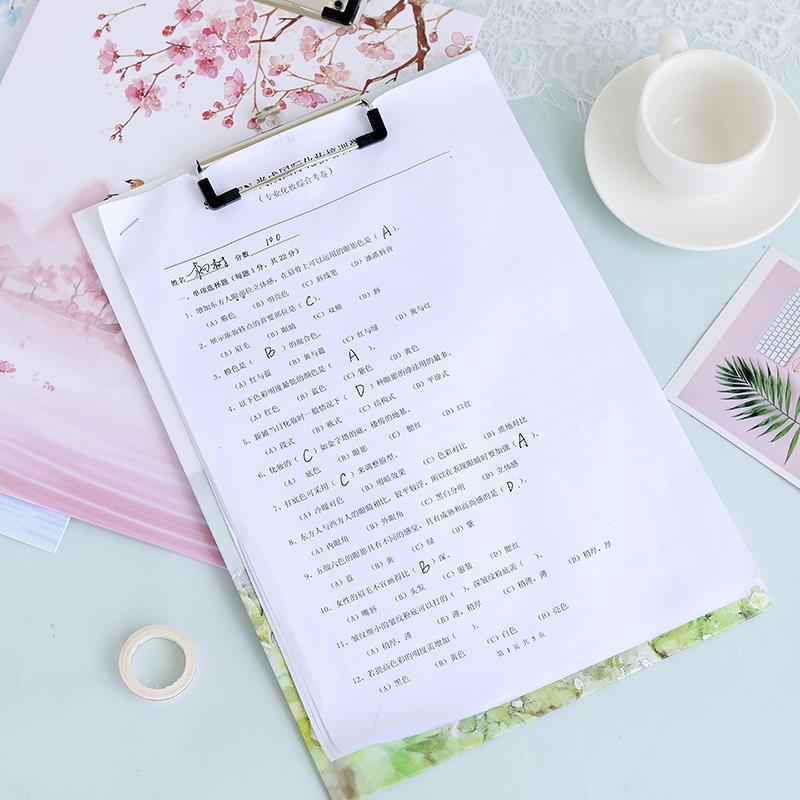 （专业化妆综合考卷）
姓名 分数 100
一、单项选择题（每题1分，共22分）
1、增加东方人眼部位立体感，在眉骨上可以运用的眼影色是（ A ）。
(A) 粉色 (B) 明亮色 (C) 唇线笔 (D) 油质唇膏
2、展示浓妆特点的首要部位是（ C ）。
(A) 眉毛 (B) 眼睛 (C) 双颊 (D) 唇
3、橙色是（ B ）的混合色。
(A) 红与蓝 (B) 黄与蓝 (C) 红与绿 (D) 黄与红
4、以下色彩明度最低的颜色是（ A ）。
(A) 红色 (B) 蓝色 (C) 紫色 (D) 黄色
5、新娘当日化妆时一般情况下（ D ）种眼影的涂法用的最多。
(A) 段式 (B) 欧式 (C) 结构式 (D) 平涂式
6、化妆的（ C ）如金字塔的底，楼房的地基。
(A) 底色 (B) 眼影 (C) 腮红 (D) 口红
7、打底色可采用（ C ）来调整脸型。
(A) 冷暖对色 (B) 明暗效果 (C) 色彩对比 (D) 质地对比
8、东方人与西方人的眼睛相比，较平较浮，所以在表现眼睛时要加强（ A ）。
(A) 内眼角 (B) 外眼角 (C) 黑白分明 (D) 立体感
9、五颜六色的眼影具有不同的感觉，具有成熟和高尚感的是（ D ）。
(A) 蓝 (B) 黄 (C) 绿 (D) 紫
10、女性的眉毛不宜画得比（ B ）深。
(A) 嘴唇 (B) 头发 (C) 服装 (D) 腮红
11、皱纹细小的皱纹粉底可以打的（ ），深皱纹粉底需（ ）。
(A) 稍厚，薄 (B) 薄，稍厚 (C) 稍薄，薄 (D) 稍厚，厚
12、若提高色彩的明度需增加（ ）。
(A) 黑色 (B) 黄色 (C) 白色 (D) 亮色
第 1 页 共 5 页